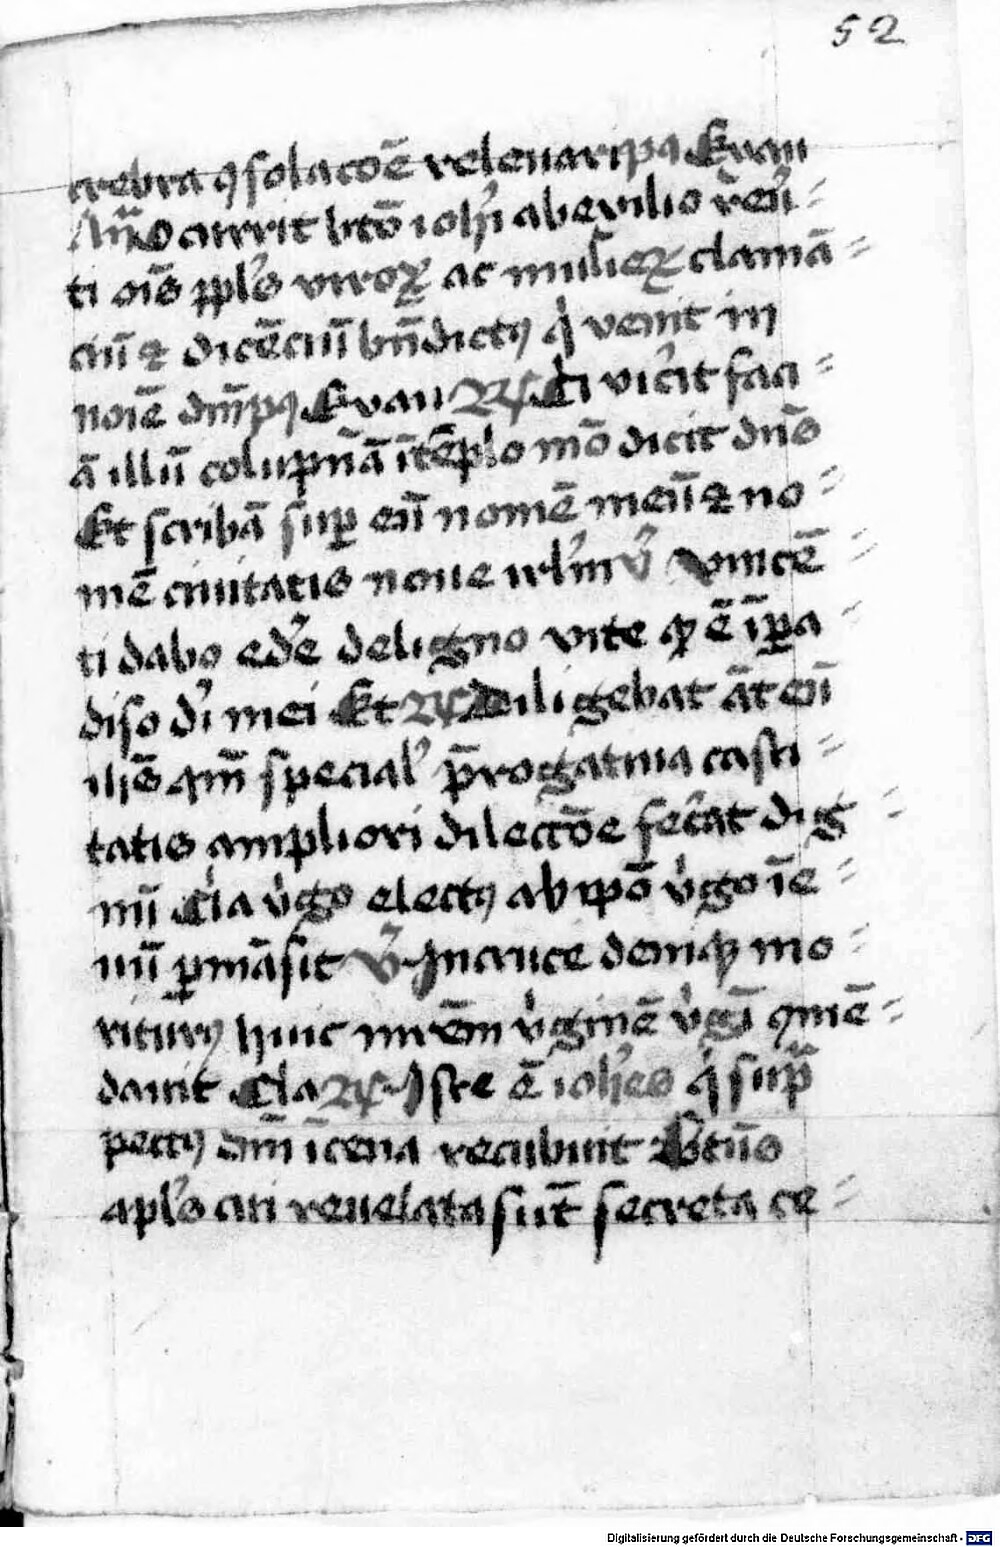 52
crebra ꝯsolacoē releuaripꝰ Euan
Añ Ocurrit bto᷑ ioh̄i ab exilio reu᷑⸗
ti oīs ppl̄s viroꝝ ac mulieꝝ clamā⸗
ciū ⁊ dicēciū bn̄dictꝰ qͥ venit in
noīe dm̄pꝰ Euan ℟ Qͥ vic᷑it faci⸗
ā illū colupnā ī tēplo mō dicit dn̄s
Et scribā suꝑ eū nomē meū ⁊ no⸗
mē ciuitatis noue irl̄m ℣ Vincē⸗
ti dabo ed᷑e de ligno vite qͦ ē ī ꝑa⸗
diso di mei Et ℟ Diligebat āt eū
ih̄s qm̄ specialͥ p̄rogatiua casti⸗
tatis ampliori dilectōe fec᷑at dig⸗
nū Qͥa vͥgo electꝰ ab ip̄o vͥgo ī e⸗
uū ꝑmāsit ℣ In cruce deniqꝫ mo⸗
riturꝰ huic mr̄em vͥginē vͥgī ꝯmē⸗
dauit Qͥa ℟ Iste ē ioh̄es qͥ supͣ
pectꝰ dn̄i ī cena recubuit Btūs
apl̄s cui reuelata sūt secreta ce⸗
Digitalisierung gefördert durch die Deutsche Forschungsgemeinschaft - DFG